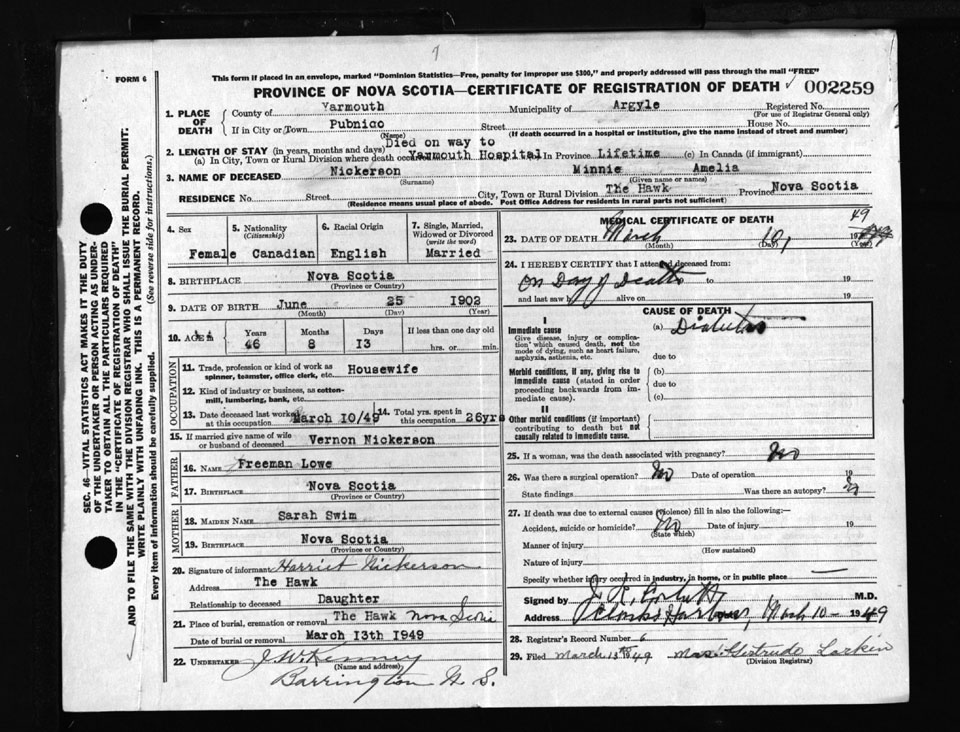 FORM 6
This form if placed in an envelope, marked "Dominion Statistics—Free, penalty for improper use $300," and properly addressed will pass through the mail "FREE"
PROVINCE OF NOVA SCOTIA—CERTIFICATE OF REGISTRATION OF DEATH 002259
1. PLACE OF DEATH
County of Yarmouth Municipality of Argyle Registered No.
(For use of Registrar General only)
If in City or Town Pubnico Street House No.
(Name) (If death occurred in a hospital or institution, give the name instead of street and number)
2. LENGTH OF STAY (in years, months and days) Died on way to
(a) In City, Town or Rural Division where death occurred Yarmouth Hospital In Province Lifetime (c) In Canada (if immigrant)
3. NAME OF DECEASED Nickerson Minnie Amelia
(Surname) (Given name or names)
RESIDENCE No. Street City, Town or Rural Division The Hawk Province Nova Scotia
(Residence means usual place of abode. Post Office Address for residents in rural parts not sufficient)
4. Sex 5. Nationality (Citizenship) 6. Racial Origin 7. Single, Married, Widowed or Divorced (write the word)
Female Canadian English Married
8. BIRTHPLACE Nova Scotia
(Province or Country)
9. DATE OF BIRTH June 25 1902
(Month) (Day) (Year)
10. AGE Years Months Days If less than one day old
46 8 13 hrs. or min.
OCCUPATION
11. Trade, profession or kind of work as spinner, teamster, office clerk, etc. Housewife
12. Kind of industry or business, as cotton-mill, lumbering, bank, etc.
13. Date deceased last worked at this occupation March 10/49 14. Total yrs. spent in this occupation 26yrs
15. If married give name of wife or husband of deceased Vernon Nickerson
FATHER
16. NAME Freeman Lowe
17. BIRTHPLACE Nova Scotia
(Province or Country)
MOTHER
18. MAIDEN NAME Sarah Swim
19. BIRTHPLACE Nova Scotia
(Province or Country)
20. Signature of informant Harriet Nickerson
Address The Hawk
Relationship to deceased Daughter
21. Place of burial, cremation or removal The Hawk Nova Scotia
Date of burial or removal March 13th 1949
22. UNDERTAKER J. W. Kenney
(Name and address)
Barrington N. S.
MEDICAL CERTIFICATE OF DEATH
23. DATE OF DEATH March 10, 49
(Month) (Day) (Year)
24. I HEREBY CERTIFY that I attended deceased from:
On Day of Death to 19
and last saw h alive on 19
CAUSE OF DEATH
I
Immediate cause (a) Diabetes
Give disease, injury or complication which caused death, not the mode of dying, such as heart failure, asphyxia, asthenia, etc. due to
Morbid conditions, if any, giving rise to immediate cause (stated in order proceeding backwards from immediate cause). (b)
due to
(c)
II
Other morbid conditions (if important) contributing to death but not causally related to immediate cause.
25. If a woman, was the death associated with pregnancy? No
26. Was there a surgical operation? No Date of operation 19
State findings Was there an autopsy?
27. If death was due to external causes (violence) fill in also the following:—
Accident, suicide or homicide? No Date of injury 19
(State which)
Manner of injury
(How sustained)
Nature of injury
Specify whether injury occurred in industry, in home, or in public place —
Signed by M.D.
Address Clarks Harbour, March 10 - 1949
28. Registrar's Record Number 6
29. Filed March 13th 1949 Gertrude Larkin
(Division Registrar)
SEC. 46—VITAL STATISTICS ACT MAKES IT THE DUTY
OF THE UNDERTAKER OR PERSON ACTING AS UNDER-
TAKER TO OBTAIN ALL THE PARTICULARS REQUIRED
IN THE "CERTIFICATE OF REGISTRATION OF DEATH"
AND TO FILE THE SAME WITH THE DIVISION REGISTRAR WHO SHALL ISSUE THE BURIAL PERMIT.
WRITE PLAINLY WITH UNFADING INK. THIS IS A PERMANENT RECORD.
Every item of information should be carefully supplied. (See reverse side for instructions.)